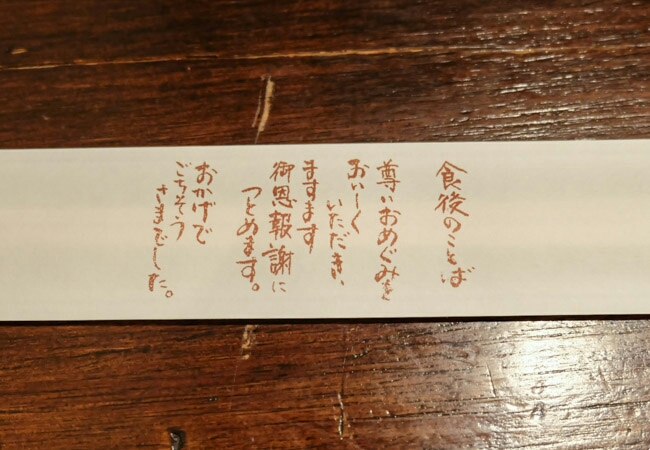 食後のことば
尊いおめぐみを
おいしく
いただき、
ますます
御恩報謝に
つとめます。
おかげで
ごちそう
さまでした。